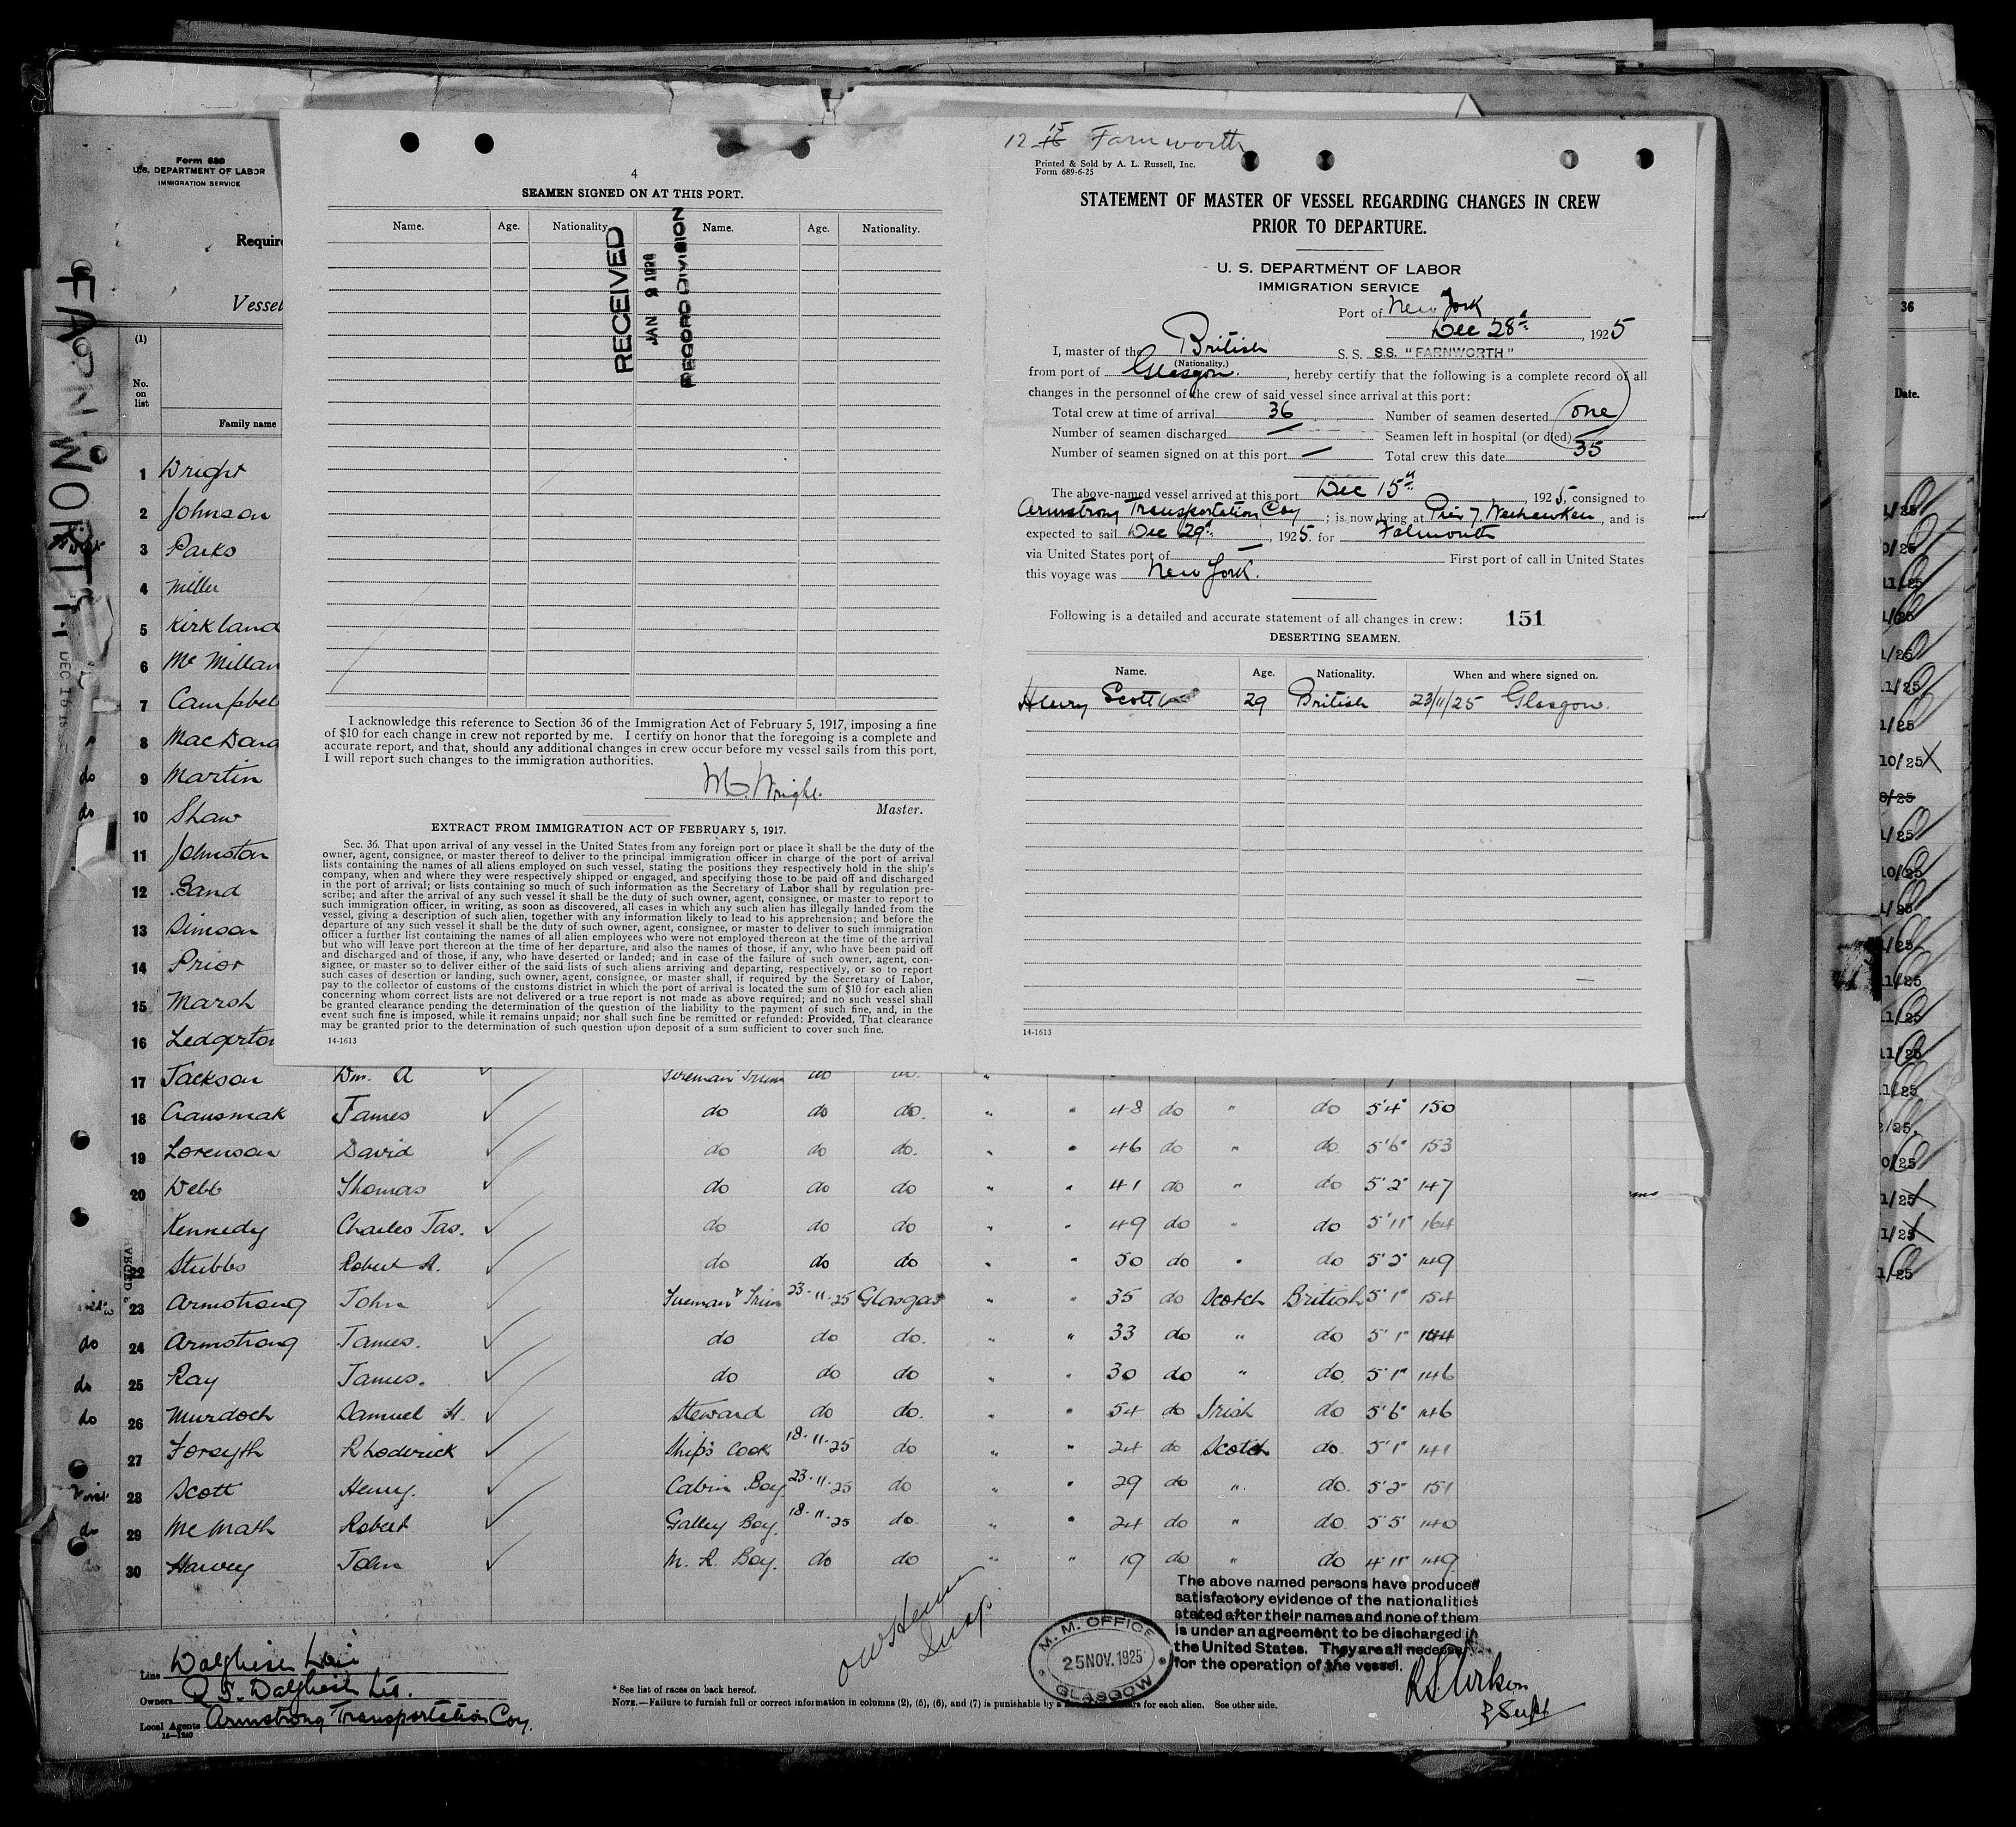 Form 680
U.S. DEPARTMENT OF LABOR
IMMIGRATION SERVICE
Requir
Vessel
FARNWORTH
DEC 16
(1)
No. on list
Family name
1 Wright
2 Johnson
3 Parks
4 Miller
5 Kirkland
6 Mc Millan
7 Campbel
8 MacDona
do 9 Martin
do 10 Shaw
11 Johnston
12 Band
13 Simson
14 Prior
15 Marsh
16 Ledgerton
4
SEAMEN SIGNED ON AT THIS PORT.
Name. Age. Nationality. Name. Age. Nationality.
RECEIVED
JAN 2 1926
RECORD DIVISION
I acknowledge this reference to Section 36 of the Immigration Act of February 5, 1917, imposing a fine
of $10 for each change in crew not reported by me. I certify on honor that the foregoing is a complete and
accurate report, and that, should any additional changes in crew occur before my vessel sails from this port,
I will report such changes to the immigration authorities.
M. Wright.
Master.
EXTRACT FROM IMMIGRATION ACT OF FEBRUARY 5, 1917.
Sec. 36. That upon arrival of any vessel in the United States from any foreign port or place it shall be the duty of the
owner, agent, consignee, or master thereof to deliver to the principal immigration officer in charge of the port of arrival
lists containing the names of all aliens employed on such vessel, stating the positions they respectively hold in the ship's
company, when and where they were respectively shipped or engaged, and specifying those to be paid off and discharged
in the port of arrival; or lists containing so much of such information as the Secretary of Labor shall by regulation pre-
scribe; and after the arrival of any such vessel it shall be the duty of such owner, agent, consignee, or master to report to
such immigration officer, in writing, as soon as discovered, all cases in which any such alien has illegally landed from the
vessel, giving a description of such alien, together with any information likely to lead to his apprehension; and before the
departure of any such vessel it shall be the duty of such owner, agent, consignee, or master to deliver to such immigration
officer a further list containing the names of all alien employees who were not employed thereon at the time of the arrival
but who will leave port thereon at the time of her departure, and also the names of those, if any, who have been paid off
and discharged and of those, if any, who have deserted or landed; and in case of the failure of such owner, agent, con-
signee, or master so to deliver either of the said lists of such aliens arriving and departing, respectively, or so to report
such cases of desertion or landing, such owner, agent, consignee, or master shall, if required by the Secretary of Labor,
pay to the collector of customs of the customs district in which the port of arrival is located the sum of $10 for each alien
concerning whom correct lists are not delivered or a true report is not made as above required; and no such vessel shall
be granted clearance pending the determination of the question of the liability to the payment of such fine, and, in the
event such fine is imposed, while it remains unpaid; nor shall such fine be remitted or refunded: Provided, That clearance
may be granted prior to the determination of such question upon deposit of a sum sufficient to cover such fine.
14-1613
12 15 Farnworth
Printed & Sold by A. L. Russell, Inc.
Form 689-6-25
STATEMENT OF MASTER OF VESSEL REGARDING CHANGES IN CREW
PRIOR TO DEPARTURE.
U. S. DEPARTMENT OF LABOR
IMMIGRATION SERVICE
Port of New York
Dec 28th, 1925
I, master of the British S. S. S.S. "FARNWORTH"
(Nationality.)
from port of Glasgow., hereby certify that the following is a complete record of all
changes in the personnel of the crew of said vessel since arrival at this port:
Total crew at time of arrival 36 Number of seamen deserted one
Number of seamen discharged — Seamen left in hospital (or died) —
Number of seamen signed on at this port — Total crew this date 35
The above-named vessel arrived at this port Dec 15th, 1925, consigned to
Armstrong Transportation Coy; is now lying at Pier 7. Weehawken, and is
expected to sail Dec 29th, 1925. for Falmouth
via United States port of — First port of call in United States
this voyage was New York.
Following is a detailed and accurate statement of all changes in crew: 151
DESERTING SEAMEN.
Name. Age. Nationality. When and where signed on.
Henry Scott 29 British 23/11/25 Glasgow.
14-1613
36
Date.
17 Jackson Wm. A Fireman Trim do do
18 Crausmak James do do do. " " 48 do " do 5'4" 150
19 Lorenson David do do do. " " 46 do " do 5'6" 153
20 Webb Thomas do do do " " 41 do " do 5'2" 147
Kennedy Charles Jas. do do do " " 49 do " do 5'11" 164
22 Stubbs Robert A. do do do " " 50 do " do 5'2" 149
23 Armstrong John Fireman & Trim 23-11-25 Glasgow " " 35 do Scotch British 5'1" 154
do 24 Armstrong James. do do do. " " 33 do " do 5'1" 144
do 25 Ray James. do do do " " 30 do " do 5'1" 146
do 26 Murdoch Samuel H. Steward do do. " " 54 do Irish do 5'6" 146
27 Forsyth Rhoderick Ship's Cook 18-11-25 do " " 24 do Scotch do. 5'1" 141
28 Scott Henry. Cabin Boy 23-11-25 do " " 29 do " do. 5'2" 151
do 29 Mc Math Robert Galley Boy. 18-11-25 do. " " 24 do " do 5'5 140
do 30 Harvey John M. R. Boy. do do " " 19 do " do 4'11" 149
The above named persons have produced
satisfactory evidence of the nationalities
stated after their names and none of them
is under an agreement to be discharged in
the United States. They are all necessary
for the operation of the vessel.
M. M. OFFICE
25 NOV. 1925
GLASGOW
Line Dalgliesh Line
Owners R. S. Dalgliesh Ltd.
Local Agents Armstrong Transportation Coy.
14—1240
* See list of races on back hereof.
NOTE.—Failure to furnish full or correct information in columns (2), (5), (6), and (7) is punishable by a for each alien. See other side.